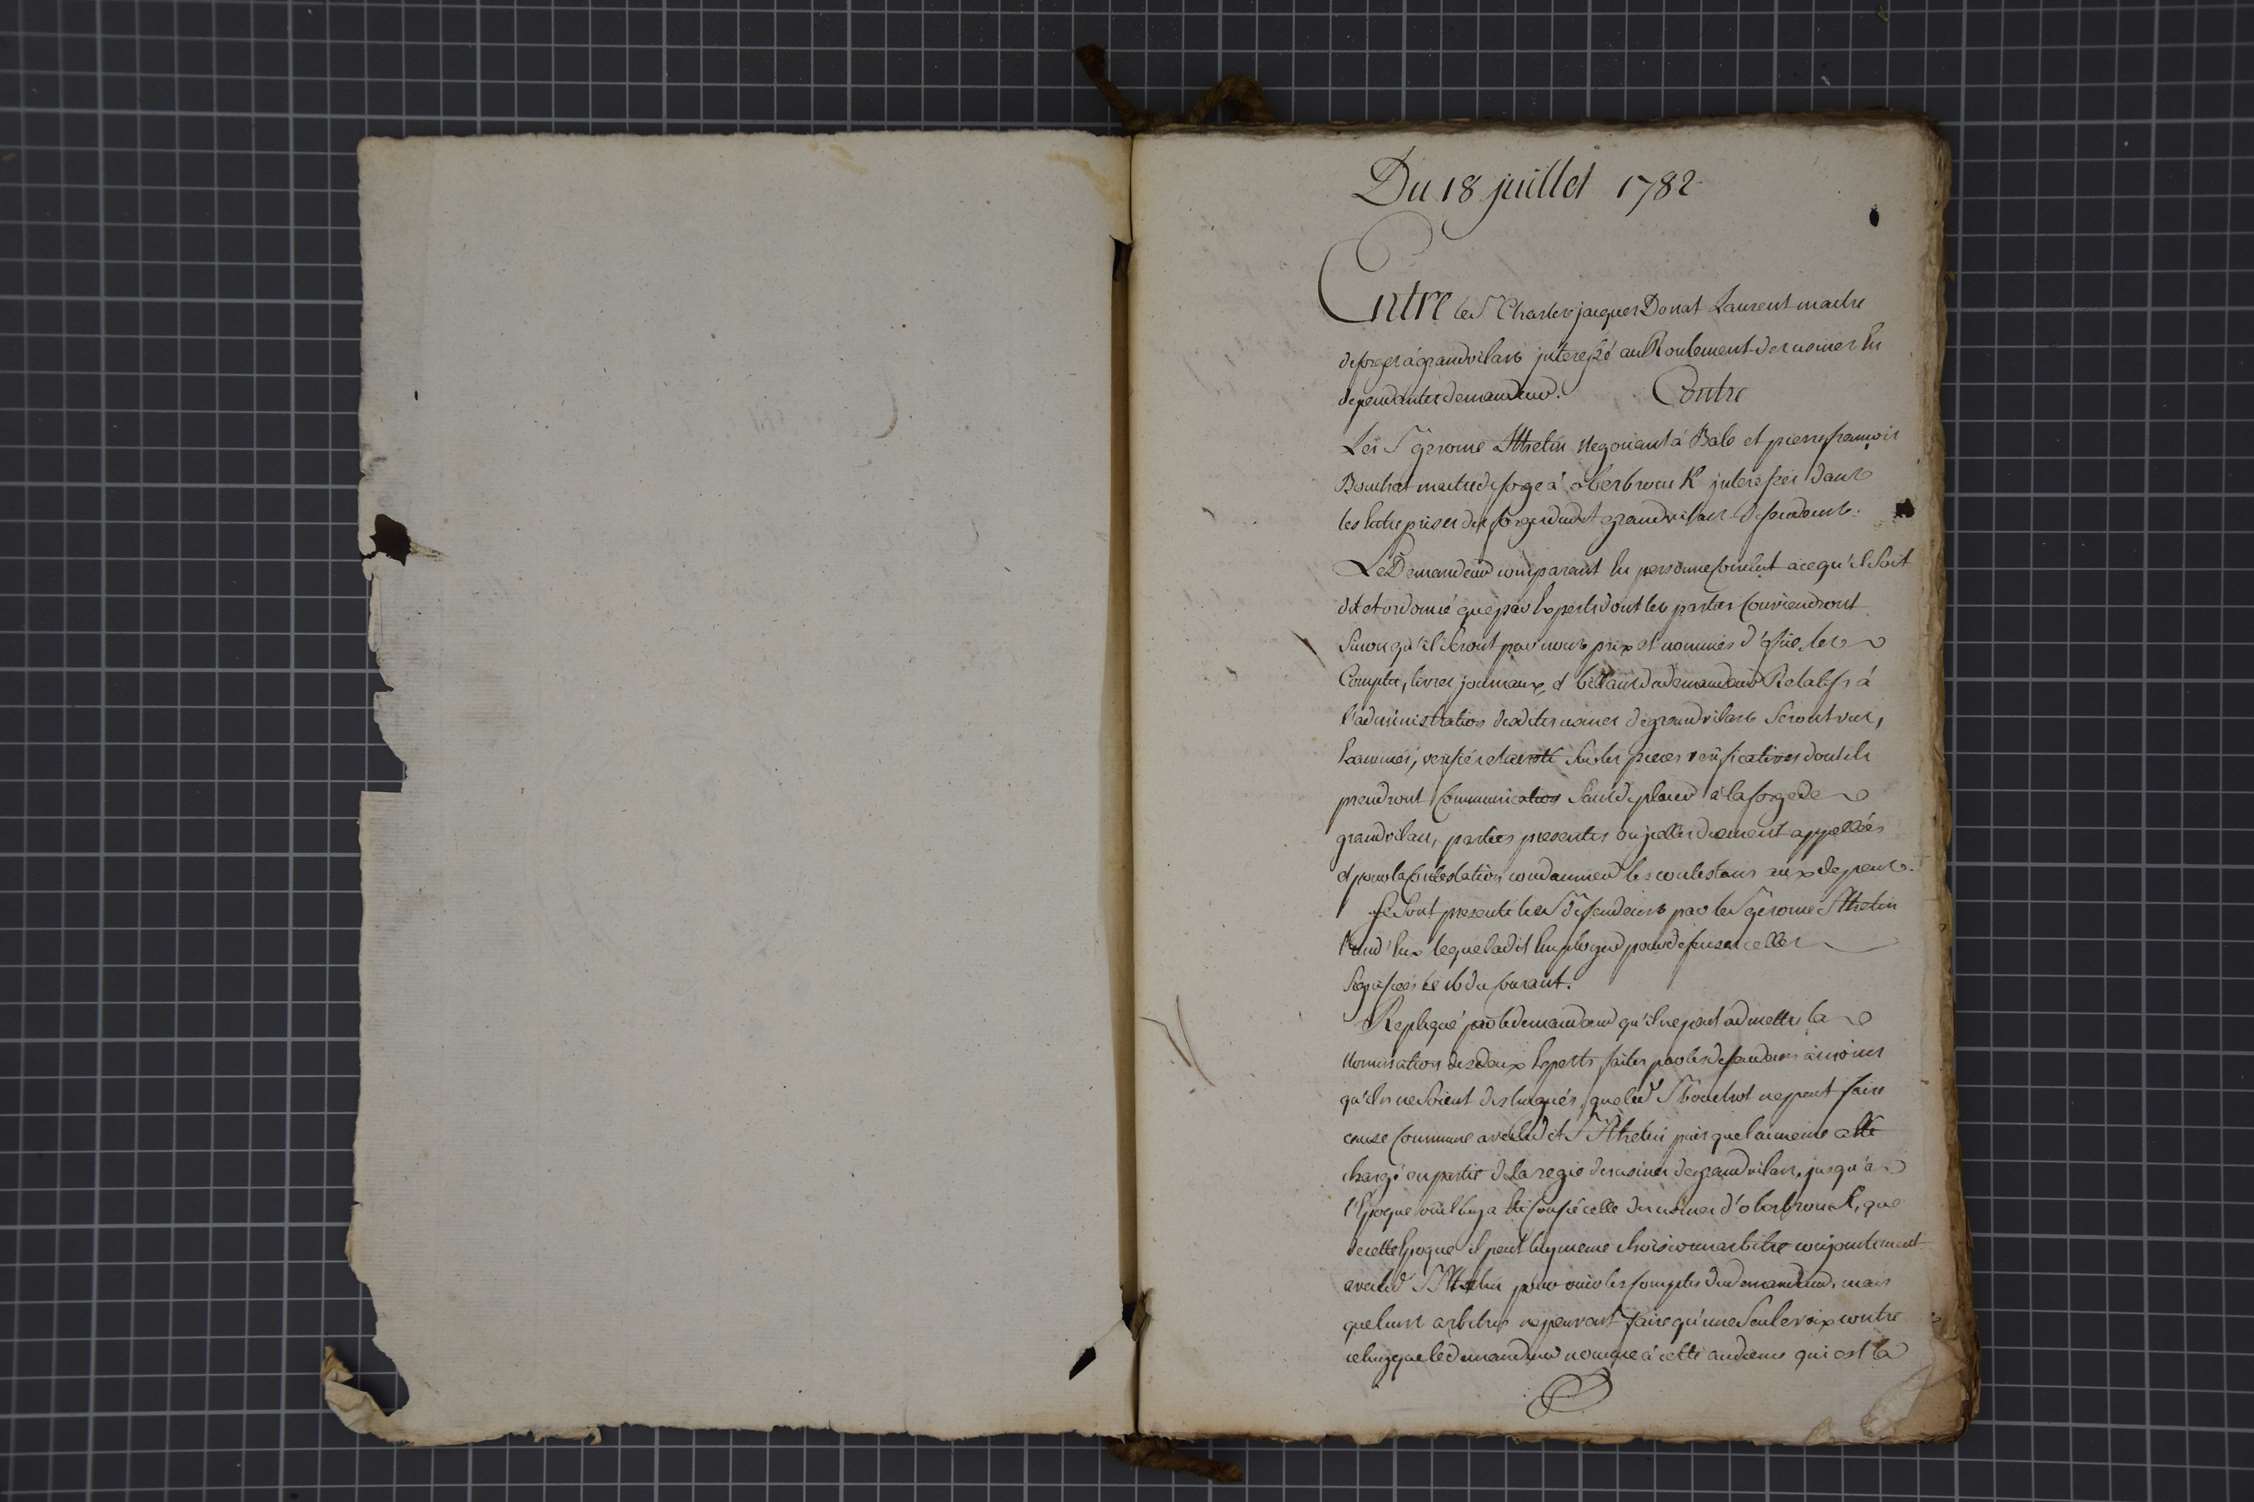 Du 18 juillet 1782
Entre le Sr Charles jacques Donat Laurent maitre
de forges à grandvilars interessé au Roulement des usines En
dependantes demandeur. Contre
Les Sr gerome Sthelin Negociant à Bale et pierre françois
Bouchot maitre de forge à oberbruck interessés dans
les Entreprises des forges dudt grandvilars defendeurs.
Le Demandeur comparant En personne Conclut a ce qu'il Soit
dit et ordonné que par Experts dont les parties Conviendront
Sinon qu'il Seront par nous prix et nommés d'office, les
Comptes, livres journaux et billans du demandeur Relatifs à
l'administration desdites usines de grandvilars Seront vus,
Examinés, verifiés et arresté Sur les pieces verificatives dont ils
prendront Communication Sans deplacer à la forge de
grandvilars, parties presentes ou jcelles duement appellées
et pour la Contestation condamner les contestans aux depens.
Se Sont presenté les Srs defendeurs par le Sr gerome Sthelin
l'un d'Eux lequel a dit Employer pour defenses celles
Signifiées le 16 du Courant.
Repliqué par le demandeur qu'il ne peut admettre la
Nomination des deux Experts faites par les defendeurs à moins
qu'ils ne Soient distingués, que led. Sr Bouchot ne peut faire
cause Commune avec ledit Sr Sthelin puis que lui meme a Eté
chargé en partie de la regie des usines de grandvilars, jusqu'à
l'Epoque où il luy a Eté Confié celle des usines d'oberbruck, que
de cette Epoque il peut luy meme choisir un arbitre conjointement
avec led. Sr Sthelin pour ouir les Comptes du demandeur, mais
que leurs arbitres ne peuvent faire qu'une Seule voix contre
celuy que le demandeur nomme à cette audience qui est la